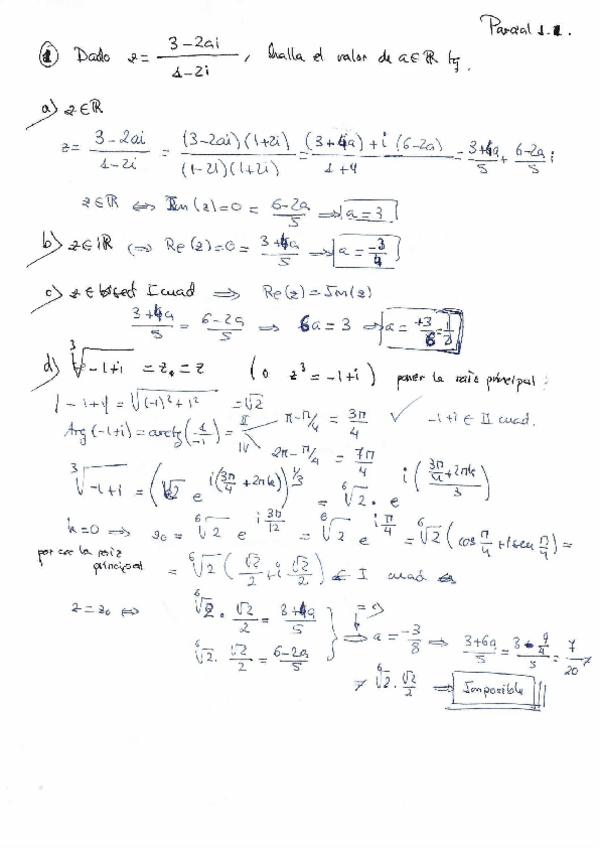 Parcial 1.1.
① Dado z = (3-2ai)/(1-2i), halla el valor de a∈ℝ tq
a) z∈ℝ
z = (3-2ai)/(1-2i) = (3-2ai)(1+2i)/(1-2i)(1+2i) = ((3+4a)+i(6-2a))/(1+4) = (3+4a)/5 + (6-2a)/5 i
z∈ℝ ⟺ Im(z)=0 = (6-2a)/5 ⟹ a=3
b) z∈iℝ ⟺ Re(z)=0 = (3+4a)/5 ⟹ a = -3/4
c) z∈ bisect I cuad ⟹ Re(z)=Im(z)
(3+4a)/5 = (6-2a)/5 ⟹ 6a=3 ⟹ a = +3/6 = 1/2
d) ∛(-1+i) = z₀ = z (o z³ = -1+i) poner la raiz principal:
|-1+i| = √((-1)²+1²) = √2
Arg(-1+i) = arctg(1/-1) = II π-π/4 = 3π/4 ✓ -1+i ∈ II cuad.
IV 2π-π/4 = 7π/4
∛(-1+i) = (√2 e^(i(3π/4+2πk)))^(1/3) = ⁶√2 · e^(i((3π/4+2πk)/3))
k=0 ⟹ z₀ = ⁶√2 e^(i 3π/12) = ⁶√2 e^(i π/4) = ⁶√2 (cos π/4 + i sen π/4) =
por ser la raiz principal = ⁶√2 (√2/2 + i √2/2) ∈ I cuad
z=z₀ ⟺ ⁶√2 · √2/2 = (3+4a)/5
⁶√2 · √2/2 = (6-2a)/5 } ⟹ a = -3/8 ⟹ (3+6a)/5 = (3-9/4)/5 = 7/20
≠ ⁶√2 · √2/2 ⟹ Imposible